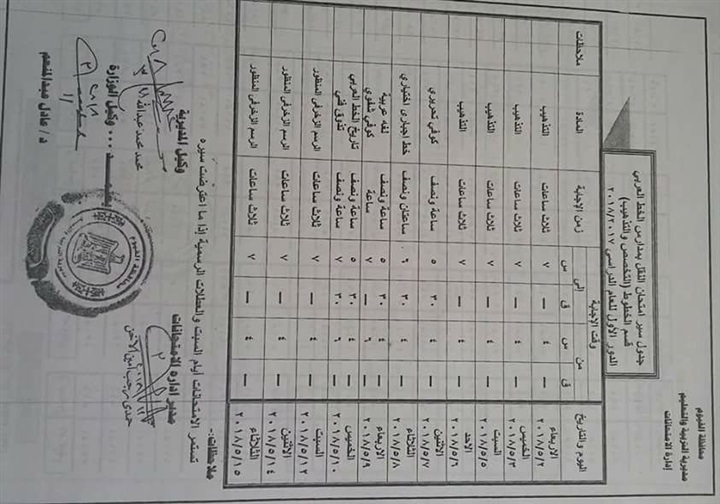 محافظة الفيوم
مديرية التربية والتعليم
إدارة الامتحانات
جدول سير امتحان النقل بمدارس الخط العربي
قسم الخطوط (التخصص والتذهيب)
الدور الأول للعام الدراسى ٢٠١٨/٢٠١٧
اليوم والتاريخ وقت الإجابة زمن الإجابة المادة ملاحظات
من إلى
ق س ق س
الاربعاء ٢٠١٨/٥/٢ — ٤ — ٧ ثلاث ساعات التذهيب
الخميس ٢٠١٨/٥/٣ — ٤ — ٧ ثلاث ساعات التذهيب
السبت ٢٠١٨/٥/٥ — ٤ — ٧ ثلاث ساعات التذهيب
الاحد ٢٠١٨/٥/٦ — ٤ — ٧ ثلاث ساعات التذهيب
الاثنين ٢٠١٨/٥/٧ — ٤ ٣٠ ٥ ساعة ونصف كوفي تحريرى
الثلاثاء ٢٠١٨/٥/٨ — ٤ ٣٠ ٦ ساعتان ونصف خط اجبارى اختيارى
الاربعاء ٢٠١٨/٥/٩ — ٤ ٣٠ ٥ ساعة ونصف لغه عربية
— ٦ — ٧ ساعة كوفى شفوي
الخميس ٢٠١٨/٥/١٠ — ٤ ٣٠ ٥ ساعة ونصف تاريخ الخط العربي
— ٦ ٣٠ ٧ ساعة ونصف تذوق فنى
السبت ٢٠١٨/٥/١٢ — ٤ — ٧ ثلاث ساعات الرسم الزخرفى المنظور
الاثنين ٢٠١٨/٥/١٤ — ٤ — ٧ ثلاث ساعات الرسم الزخرفى المنظور
الثلاثاء ٢٠١٨/٥/١٥ — ٤ — ٧ ثلاث ساعات الرسم الزخرفى المنظور
ملاحظات:-
تستمر الامتحانات أيام السبت والعطلات الرسمية إذا ما اعترضت سيره
مدير ادارة الامتحانات
وكيل المديرية
محمد محمد عبدالله
يعتمد ... وكيل الوزارة
د/ عادل عبدالمنعم